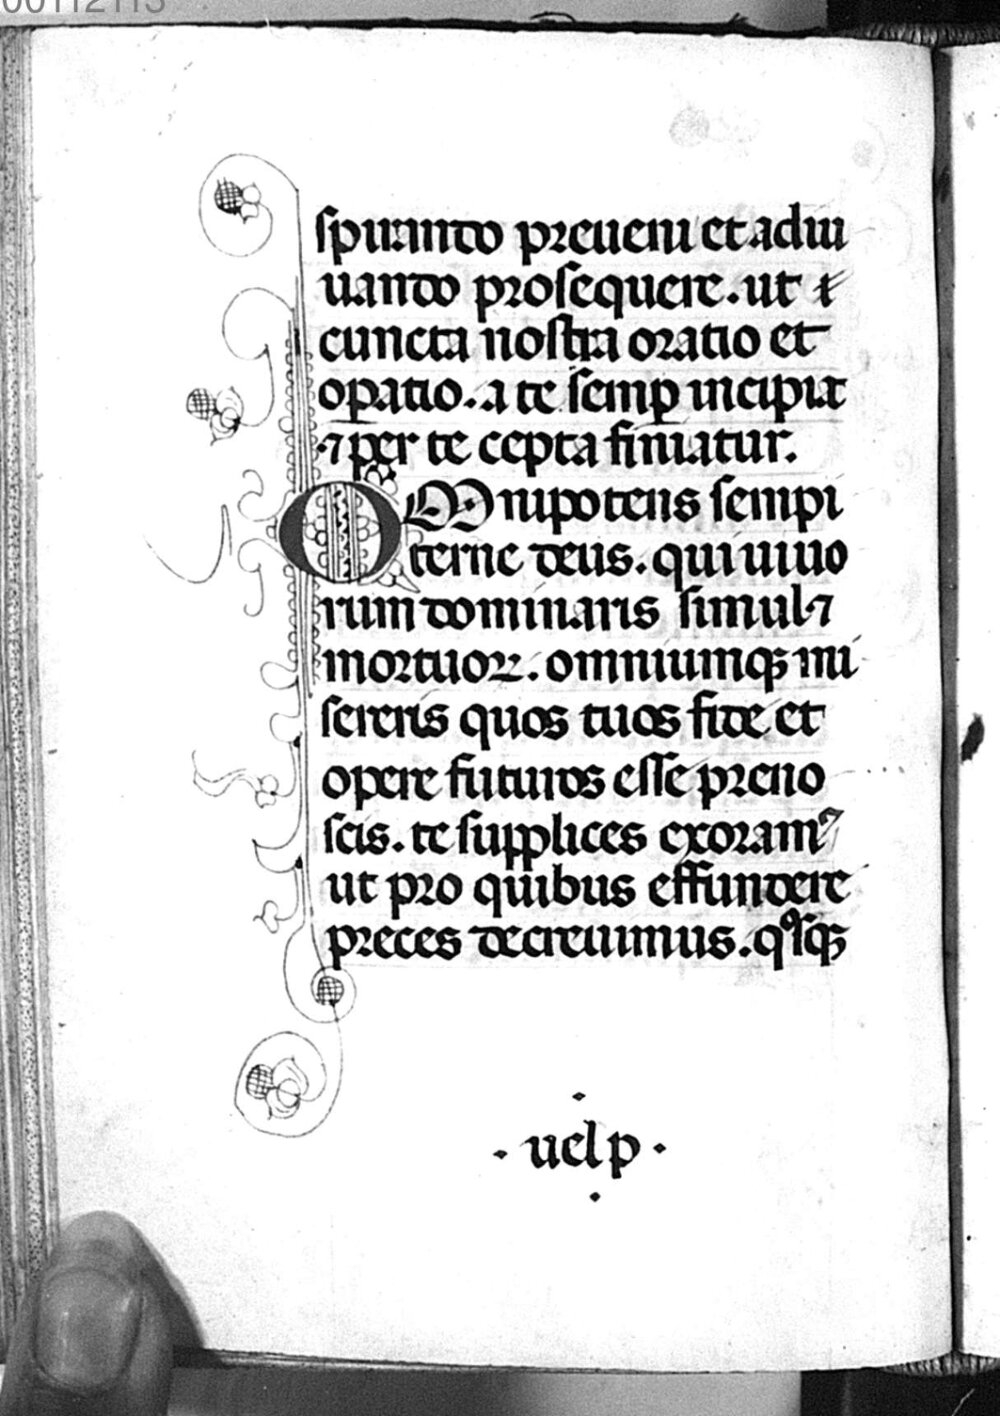 00112113
spirando preueni et adiu
uando prosequere. ut ⁊
cuncta nostra oratio et
oꝑatio. a te semꝑ incipiat
⁊ per te cepta finiatur.
OMnipotens sempi
terne deus. qui uiuo
rum dominaris simul ⁊
mortuoꝝ. omniumqꝫ mi
sereris quos tuos fide et
opere futuros esse preno
scis. te supplices exoramꝰ
ut pro quibus effundere
preces decreuimus. qͦsqꝫ
· uel p ·